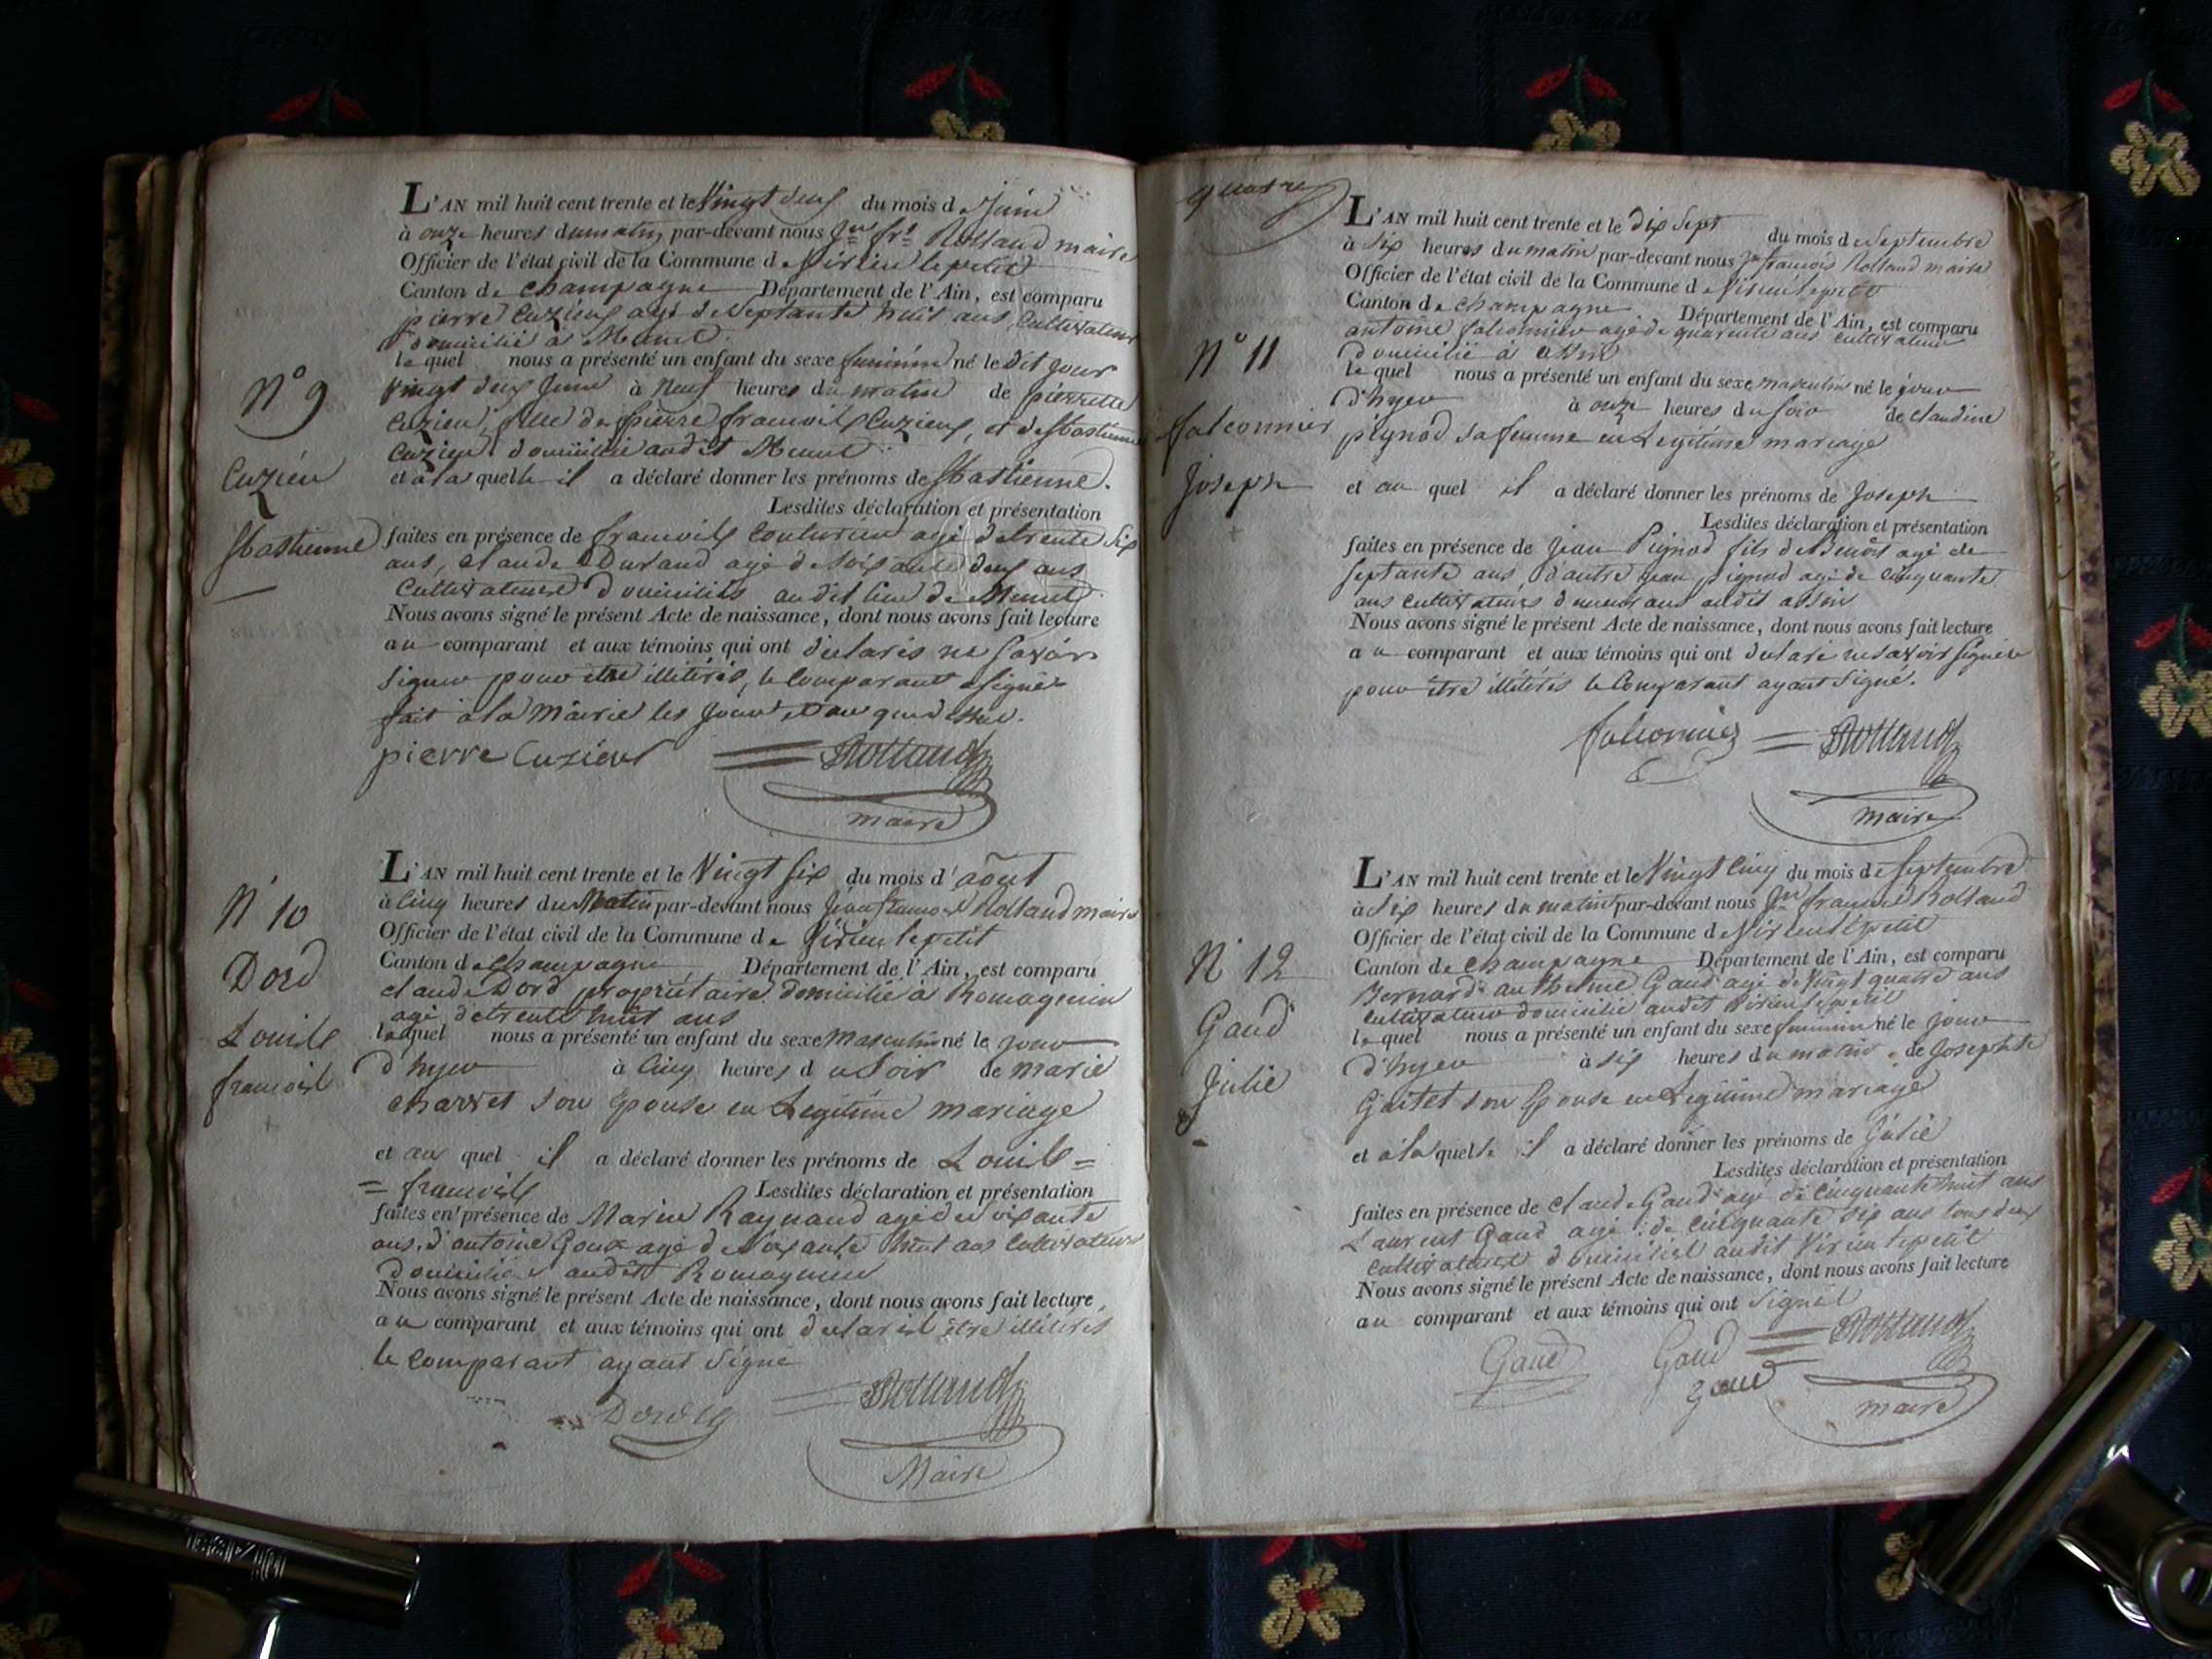 L'AN mil huit cent trente et le Vingt deux du mois de Juin
à onze heures du matin par-devant nous Jn frs Rolland maire
Officier de l'état civil de la Commune de Virieu le petit
Canton de Champagne Département de l'Ain, est comparu
pierre Cuzieux agé de Septante huit ans Cultivateur
domicilié à Munet
le quel nous a présenté un enfant du sexe feminin né le dit Jour
N° 9
Vingt deux Juin à Neuf heures du matin de pierrette
Cuzieu, fille de pierre francois Cuzieux, et de Sbastienne
Cuzieu domicilié audit Munet
Cuzieu
et à la quelle il a déclaré donner les prénoms de Sbastienne.
Lesdites déclaration et présentation
Sbastienne
faites en présence de francois Couturier agé de trente Six
ans, Claude Durand agé de Soixante deux ans
Cultivateurs domiciliés audit lieu de Munet
Nous avons signé le présent Acte de naissance, dont nous avons fait lecture
au comparant et aux témoins qui ont declarés ne Savoir
Signer pour être illitérés, le Comparant a Signé
fait à la Mairie les Jour et an que dessus.
pierre Cuzieux Rolland
maire
L'AN mil huit cent trente et le Vingt Six du mois d'août
à Cinq heures du Matin par-devant nous Jean francois Rolland maire
N° 10
Officier de l'état civil de la Commune de Virieu le petit
Canton de Champagne Département de l'Ain, est comparu
Dord
Claude Dord propriétaire domicilié à Romagnieu
agé de trente huit ans
Louis
le quel nous a présenté un enfant du sexe Masculin né le jour
francois
d'hyer à Cinq heures du Soir de marie
Charvet Son Epouse en Legitime mariage
et au quel il a déclaré donner les prénoms de Louis =
= francois Lesdites déclaration et présentation
faites en présence de Marin Raynaud agé de Soixante
ans, d'antoine Goux agé de Soixante huit ans Cultivateurs
domiciliés audit Romagnieu
Nous avons signé le présent Acte de naissance, dont nous avons fait lecture
au comparant et aux témoins qui ont declarés être illiterés
le Comparant ayant Signé
Dord Rolland
Maire
quatre
L'AN mil huit cent trente et le dix Sept du mois de Septembre
à Six heures du matin par-devant nous Jn francois Rolland maire
Officier de l'état civil de la Commune de Virieu le petit
Canton de Champagne Département de l'Ain, est comparu
antoine falconnier agé de quarante ans cultivateur
N° 11
domicilié à assin
le quel nous a présenté un enfant du sexe masculin né le jour
d'hyer à onze heures du soir de Claudine
falconnier
pignod sa femme en Legitime mariage
Joseph
et au quel il a déclaré donner les prénoms de Joseph
Lesdites déclaration et présentation
faites en présence de Jean Pignod fils de Benoit agé de
septante ans, d'autre Jean pignod agé de Cinquante
ans Cultivateurs demeurans audit assin
Nous avons signé le présent Acte de naissance, dont nous avons fait lecture
au comparant et aux témoins qui ont declaré ne savoir signer
pour être illitérés le Comparant ayant Signé.
falconnier Rolland
maire
L'AN mil huit cent trente et le Vingt Cinq du mois de Septembre
à Six heures du matin par-devant nous Jn francois Rolland
Officier de l'état civil de la Commune de Virieu le petit
N° 12
Canton de Champagne Département de l'Ain, est comparu
Bernard anthelme Gaud agé de Vingt quatre ans
Gaud
Cultivateur domicilié audit Virieu le petit
le quel nous a présenté un enfant du sexe feminin né le jour
Julie
d'hyer à six heures du matin de Josephte
Goitet son Epouse en Legitime mariage
et à la quelle il a déclaré donner les prénoms de Julie
Lesdites déclaration et présentation
faites en présence de Claude Gaud agé de Cinquante huit ans
Laurent Gaud agé de Cinquante Six ans tous deux
Cultivateurs domiciliés audit Virieu le petit
Nous avons signé le présent Acte de naissance, dont nous avons fait lecture
au comparant et aux témoins qui ont Signés
Gaud Gaud Rolland
gaud
maire